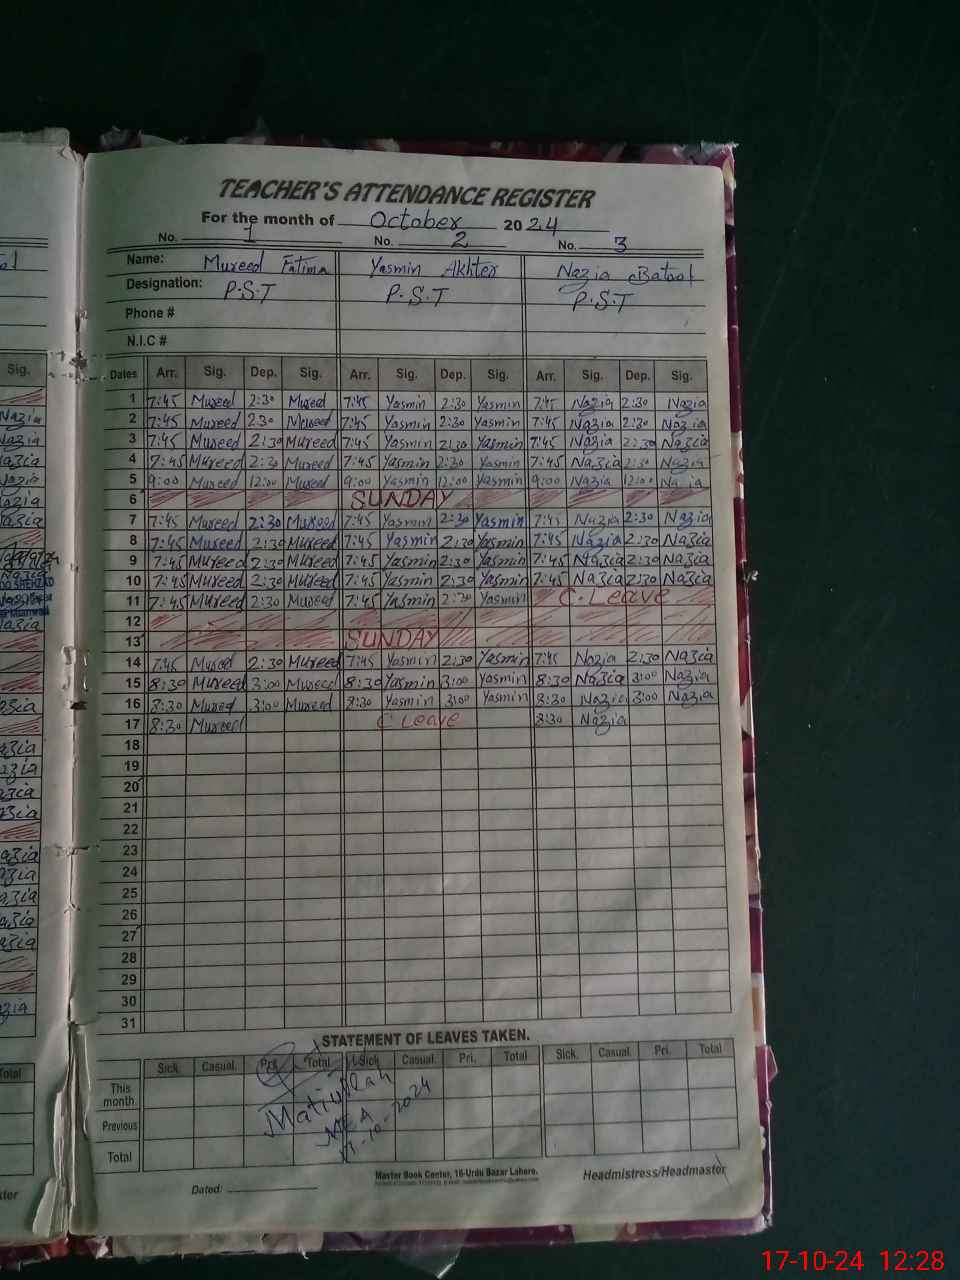 TEACHER'S ATTENDANCE REGISTER
For the month of October 2024
No. 1 No. 2 No. 3
Name: Mureed Fatima Yasmin Akhter Nazia Batool
Designation: P.S.T P.S.T P.S.T
Phone #
N.I.C #
Dates Arr. Sig. Dep. Sig. Arr. Sig. Dep. Sig. Arr. Sig. Dep. Sig.
1 7:45 Mureed 2:30 Mureed 7:45 Yasmin 2:30 Yasmin 7:45 Nazia 2:30 Nazia
2 7:45 Mureed 2:30 Mureed 7:45 Yasmin 2:30 Yasmin 7:45 Nazia 2:30 Nazia
3 7:45 Mureed 2:30 Mureed 7:45 Yasmin 2:30 Yasmin 7:45 Nazia 2:30 Nazia
4 7:45 Mureed 2:30 Mureed 7:45 Yasmin 2:30 Yasmin 7:45 Nazia 2:30 Nazia
5 9:00 Mureed 12:00 Mureed 9:00 Yasmin 12:00 Yasmin 9:00 Nazia 12:00 Nazia
6 SUNDAY
7 7:45 Mureed 2:30 Mureed 7:45 Yasmin 2:30 Yasmin 7:45 Nazia 2:30 Nazia
8 7:45 Mureed 2:30 Mureed 7:45 Yasmin 2:30 Yasmin 7:45 Nazia 2:30 Nazia
9 7:45 Mureed 2:30 Mureed 7:45 Yasmin 2:30 Yasmin 7:45 Nazia 2:30 Nazia
10 7:45 Mureed 2:30 Mureed 7:45 Yasmin 2:30 Yasmin 7:45 Nazia 2:30 Nazia
11 7:45 Mureed 2:30 Mureed 7:45 Yasmin 2:30 Yasmin C. Leave
12
13 SUNDAY
14 7:45 Mureed 2:30 Mureed 7:45 Yasmin 2:30 Yasmin 7:45 Nazia 2:30 Nazia
15 8:30 Mureed 3:00 Mureed 8:30 Yasmin 3:00 Yasmin 8:30 Nazia 3:00 Nazia
16 8:30 Mureed 3:00 Mureed 8:30 Yasmin 3:00 Yasmin 8:30 Nazia 3:00 Nazia
17 8:30 Mureed C Leave 8:30 Nazia
18
19
20
21
22
23
24
25
26
27
28
29
30
31
STATEMENT OF LEAVES TAKEN.
Sick. Casual. Pri. Total Sick. Casual. Pri. Total Sick. Casual. Pri. Total
This month.
Previous
Total
Matiullah
MEA
17-10-2024
Master Book Center, 16-Urdu Bazar Lahore.
Dated:
Headmistress/Headmaster
17-10-24 12:28